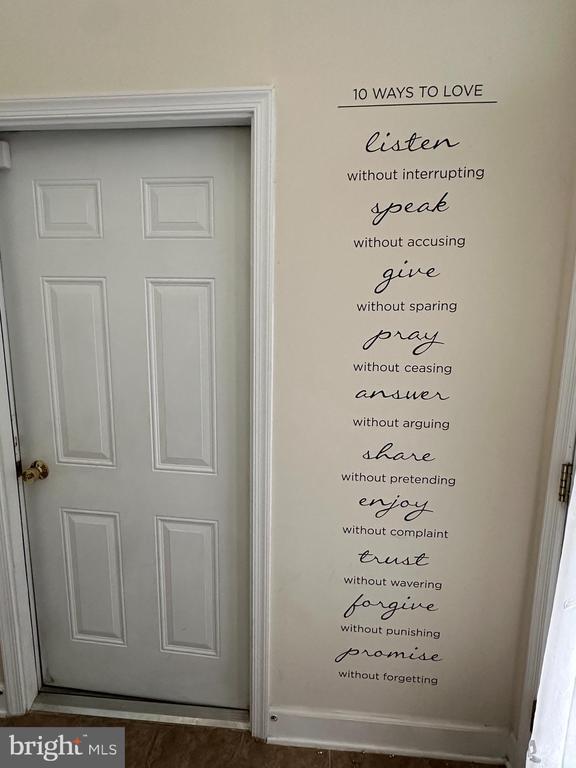 10 WAYS TO LOVE
listen
without interrupting
speak
without accusing
give
without sparing
pray
without ceasing
answer
without arguing
share
without pretending
enjoy
without complaint
trust
without wavering
forgive
without punishing
promise
without forgetting
bright MLS